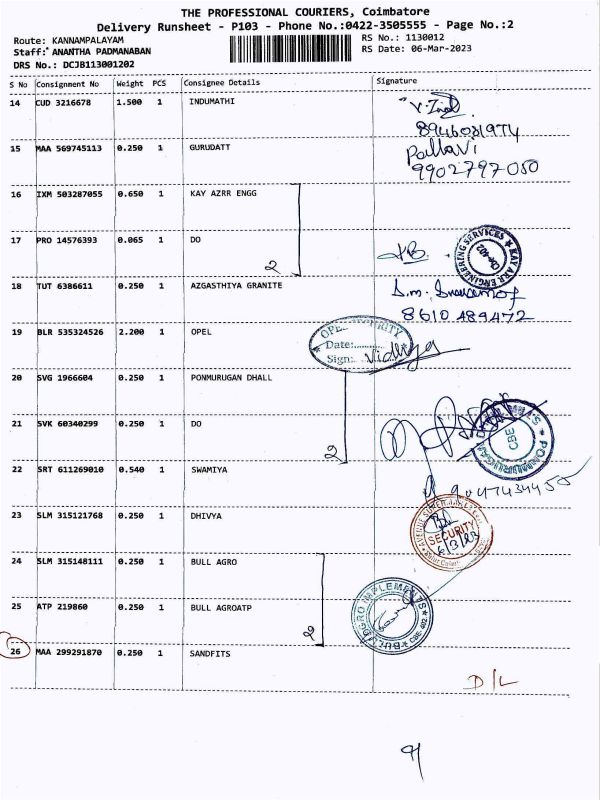 THE PROFESSIONAL COURIERS, Coimbatore
Delivery Runsheet - P103 - Phone No.:0422-3505555 - Page No.:2
Route: KANNAMPALAYAM RS No.: 1130012
Staff: ANANTHA PADMANABAN RS Date: 06-Mar-2023
DRS No.: DCJB113001202
S No Consignment No Weight PCS Consignee Details Signature
14 CUD 3216678 1.500 1 INDUMATHI
8946081974
15 MAA 569745113 0.250 1 GURUDATT Pallavi
9902797050
16 IXM 503287055 0.650 1 KAY AZRR ENGG
17 PRO 14576393 0.065 1 DO
2
KAY ARR ENGINEERING SERVICES
CBE-402
18 TUT 6386611 0.250 1 AZGASTHIYA GRANITE
8610 489472
19 BLR 535324526 2.200 1 OPEL
OPEL SECURITY
Date:............
Sign: Vidhya
20 SVG 1966604 0.250 1 PONMURUGAN DHALL
21 SVK 60340299 0.250 1 DO
2
CBE
22 SRT 611269010 0.540 1 SWAMIYA
23 SLM 315121768 0.250 1 DHIVYA
SECURITY
6/3/23
24 SLM 315148111 0.250 1 BULL AGRO
25 ATP 219860 0.250 1 BULL AGROATP
2
BULL AGRO IMPLEMENTS
CBE 402
26 MAA 299291870 0.250 1 SANDFITS
D/L